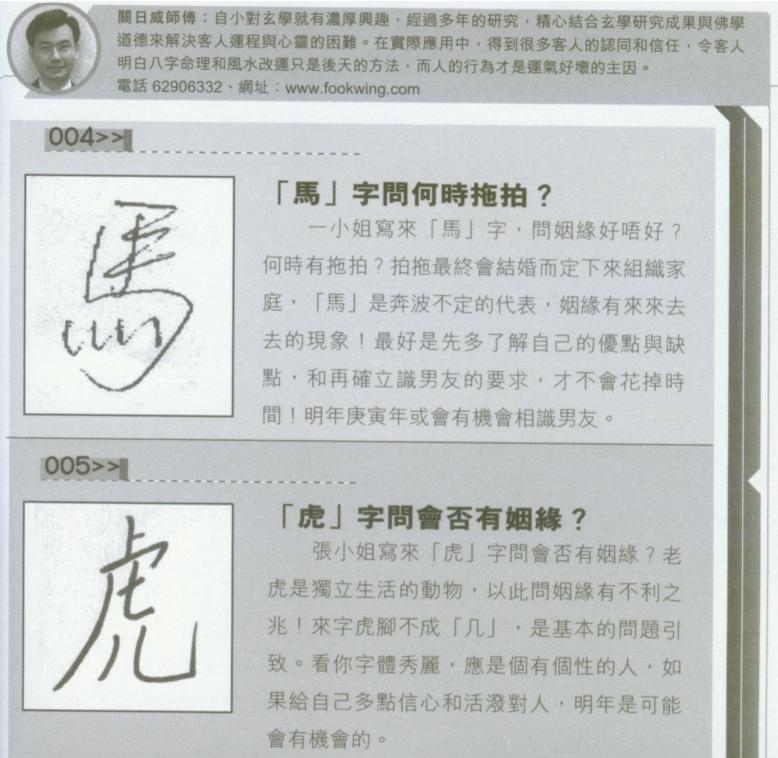 關日威師傅：自小對玄學就有濃厚興趣，經過多年的研究，精心結合玄學研究成果與佛學
道德來解決客人運程與心靈的困難。在實際應用中，得到很多客人的認同和信任，令客人
明白八字命理和風水改運只是後天的方法，而人的行為才是運氣好壞的主因。
電話 62906332、網址：www.fookwing.com
004>>
馬
「馬」字問何時拖拍？
一小姐寫來「馬」字，問姻緣好唔好？
何時有拖拍？拍拖最終會結婚而定下來組織家
庭，「馬」是奔波不定的代表，姻緣有來來去
去的現象！最好是先多了解自己的優點與缺
點，和再確立識男友的要求，才不會花掉時
間！明年庚寅年或會有機會相識男友。
005>>
虎
「虎」字問會否有姻緣？
張小姐寫來「虎」字問會否有姻緣？老
虎是獨立生活的動物，以此問姻緣有不利之
兆！來字虎腳不成「几」，是基本的問題引
致。看你字體秀麗，應是個有個性的人，如
果給自己多點信心和活潑對人，明年是可能
會有機會的。